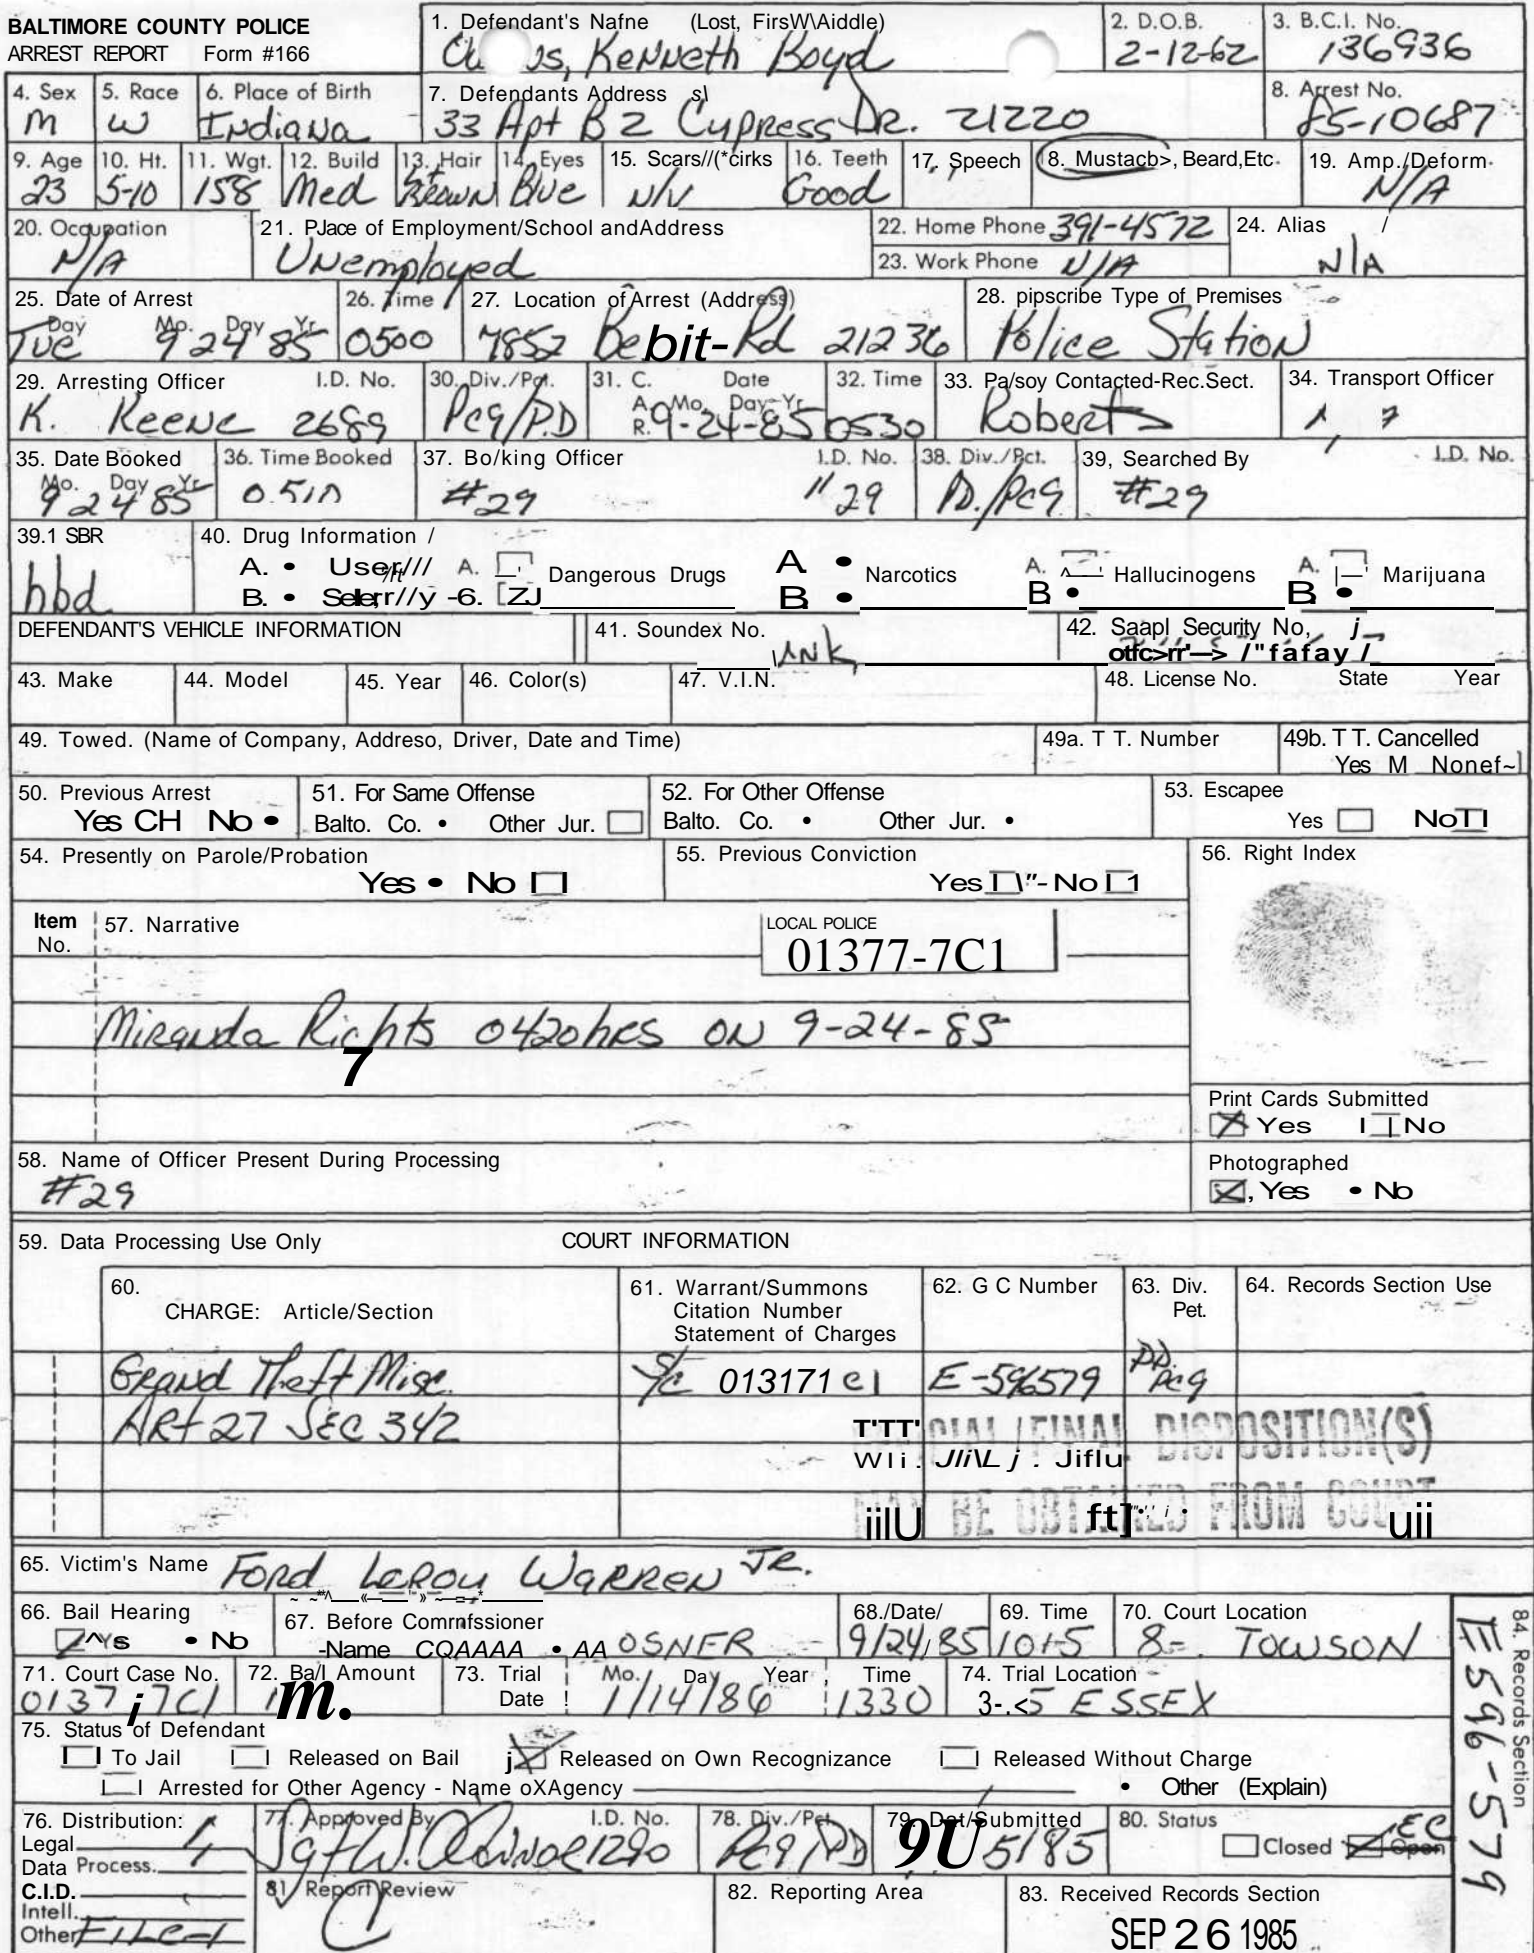 BALTIMORE COUNTY POLICE
ARREST REPORT Form #166
1. Defendant's Nafne (Lost, FirsW\Aiddle)
Kenneth Boyd
2. D.O.B.
2-12-62
3. B.C.I. No.
136936
4. Sex
M
5. Race
W
6. Place of Birth
Indiana
7. Defendants Address s\
33 Apt B2 Cypress Dr. 21220
8. Arrest No.
85-10687
9. Age
23
10. Ht.
5-10
11. Wgt.
158
12. Build
Med
13. Hair
Brown
14. Eyes
Blue
15. Scars//(*cirks
N/V
16. Teeth
Good
17, Speech
(8. Mustacb>, Beard,Etc.
19. Amp./Deform.
N/A
20. Occupation
N/A
21. PJace of Employment/School andAddress
Unemployed
22. Home Phone 391-4572
23. Work Phone N/A
24. Alias /
N/A
25. Date of Arrest
Day Mo. Day Yr
Tue 9 24 85
26. Time
0500
27. Location of Arrest (Address)
7852 Be bit- Rd 21236
28. pipscribe Type of Premises
Police Station
29. Arresting Officer I.D. No.
K. Keene 2689
30. Div./Pct.
Pc9/P.D
31. C. A. R. Date
Mo. Day Yr
9-24-85
32. Time
0530
33. Pa/soy Contacted-Rec.Sect.
Roberts
34. Transport Officer
35. Date Booked
Mo. Day Yr
9 24 85
36. Time Booked
0510
37. Bo/king Officer I.D. No.
#29 "29
38. Div./Pct.
PD./Pc9
39, Searched By I.D. No.
#29
39.1 SBR
hbd
40. Drug Information /
A. • User/// A. Dangerous Drugs A. • Narcotics A. Hallucinogens A. Marijuana
B. • Selle,rr//y -6. [ZJ B. • B • B. •
DEFENDANT'S VEHICLE INFORMATION
41. Soundex No.
unk
42. Saapl Security No, j
otfc>rr'—> /"fafay /
43. Make
44. Model
45. Year
46. Color(s)
47. V.I.N.
48. License No. State Year
49. Towed. (Name of Company, Addreso, Driver, Date and Time)
49a. T T. Number
49b. T T. Cancelled
Yes M Nonef~]
50. Previous Arrest
Yes CH No •
51. For Same Offense
Balto. Co. • Other Jur.
52. For Other Offense
Balto. Co. • Other Jur. •
53. Escapee
Yes No
54. Presently on Parole/Probation
Yes • No
55. Previous Conviction
Yes I \"- No 1
56. Right Index
Item
No.
57. Narrative
LOCAL POLICE
01377-7C1
Miranda Rights 0420hrs on 9-24-85
7
Print Cards Submitted
Yes No
58. Name of Officer Present During Processing
#29
Photographed
, Yes • No
59. Data Processing Use Only COURT INFORMATION
60.
CHARGE: Article/Section
61. Warrant/Summons
Citation Number
Statement of Charges
62. G C Number
63. Div.
Pet.
64. Records Section Use
Grand Theft Misc. S/C 013171 C1 E-596579 PD. Pc9
Art 27 Sec 342
T'TT' CIAL / FINAL DISPOSITION(S)
Wli. Jli\L j . Jiflu
iilU BE OBTAINED FROM COURT
ft] uii
65. Victim's Name Ford Leroy Warren Jr.
66. Bail Hearing
• No
67. Before Comrnfssioner
-Name CQAAAA • AA OSNER
68./Date/
9/24/85
69. Time
1015
70. Court Location
8- TOWSON
71. Court Case No.
0137 i 7C1
72. Ba/l Amount
m.
73. Trial
Date
Mo. Day Year
1/14/86
Time
1330
74. Trial Location
3-.<5 ESSEX
75. Status of Defendant
To Jail Released on Bail Released on Own Recognizance Released Without Charge
Arrested for Other Agency - Name oXAgency • Other (Explain)
76. Distribution:
Legal
Data Process.
C.I.D.
Intell.
Other FILE-1
77. Approved By I.D. No.
Sgt W. 1290
78. Div./Pct.
Pc9/PD
79. Dat/Submitted
9U 5185
80. Status
Closed Open
EC
81. Report Review
82. Reporting Area
83. Received Records Section
SEP 26 1985
84. Records Section
E596-579